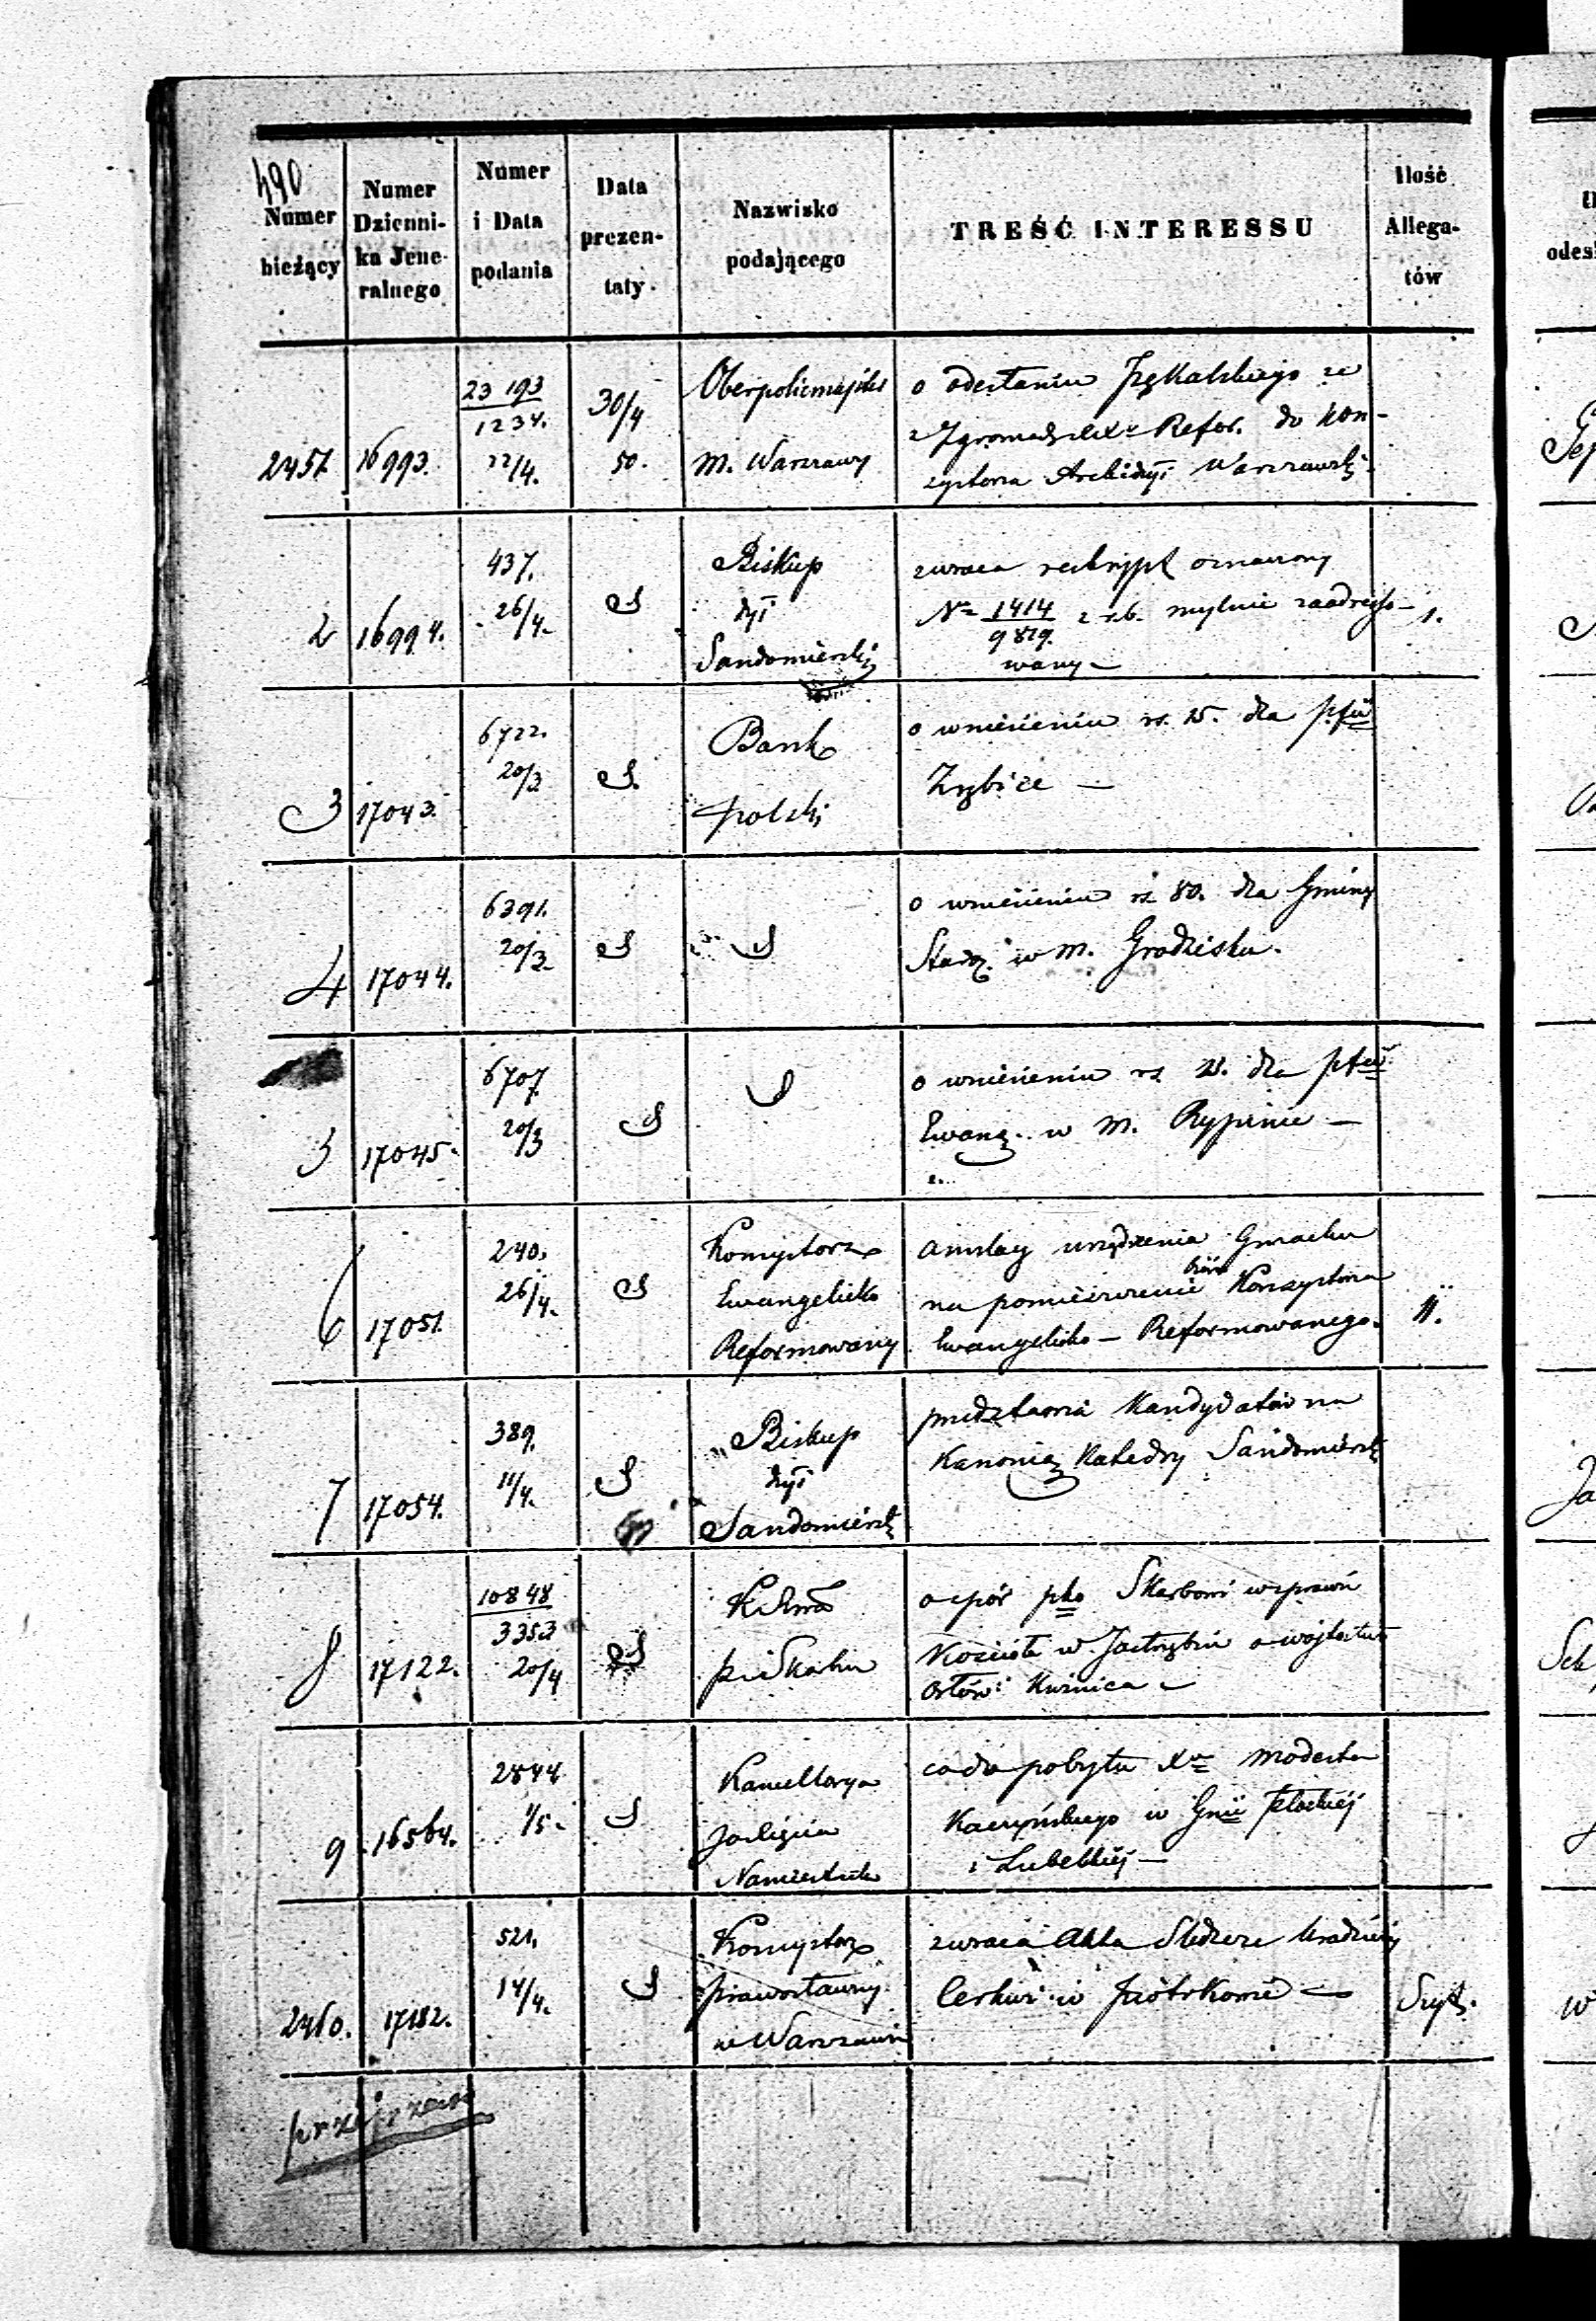 490
Numer bieżący
Numer Dzienni-ka Jene-ralnego
Numer i Data podania
Data prezen-taty.
Nazwisko podającego
TREŚĆ INTERESSU
Ilość Allega-tów
2457. 16993. 23 193 / 1234. 22/4. 30/4 50.
Oberpolicmajster
m. Warszawy
o odesłaniu
z Zgromadz. Xży Refor. do Kon-
systorza Archidyi Warszawski
2 16994. 437. 26/4.
Biskup
dyi
Sandomierski
zwraca reskrypt oznaczony
No 1414 / 9829. z r.b. mylnie zaadresso-
wany — 1.
3 17043. 6722. 20/3
Bank
polski
o wniesieniu rs. 15. dla pfii
Zrzbice —
4 17044. 6391. 20/3
o wniesieniu rs 80. dla Gminy
Staroz. w m. Grodzisku.
5 17045. 6707. 20/3
o wniesieniu rs dla pfii
Ewang. w m. Rypinie —
6 17051. 240. 26/4.
Konsystorz
Ewangelicko
Reformowany
urządzenia Gmachu
na pomieszczenie Biór Konsystorza
Ewangelicko — Reformowanego. 11.
7 17054. 389. 11/4.
Biskup
dyi
Sandomierski
przedstawia Kandydatów na
Kanonię Katedry Sandomiersk
8 17122. 10848 / 3353 20/4
i Skarbu
o spór pko Skarbowi w sprawie
Kościoła w Jastrzębiu o wójtostwo
Kuźnica —
9 16564. 2844 1/5.
Kancellarya
JOXięcia
Namiestnika
co do pobytu Xa Modesta
Kaczyńskiego w Gnii Płockiej
i Lubelskiej —
2460. 17182. 521. 14/4.
Konsystorz
prawosławny
w Warszawie
zwraca Akta Śledcze Kradzieży
Cerkwi w Piotrkowie — Szyt.